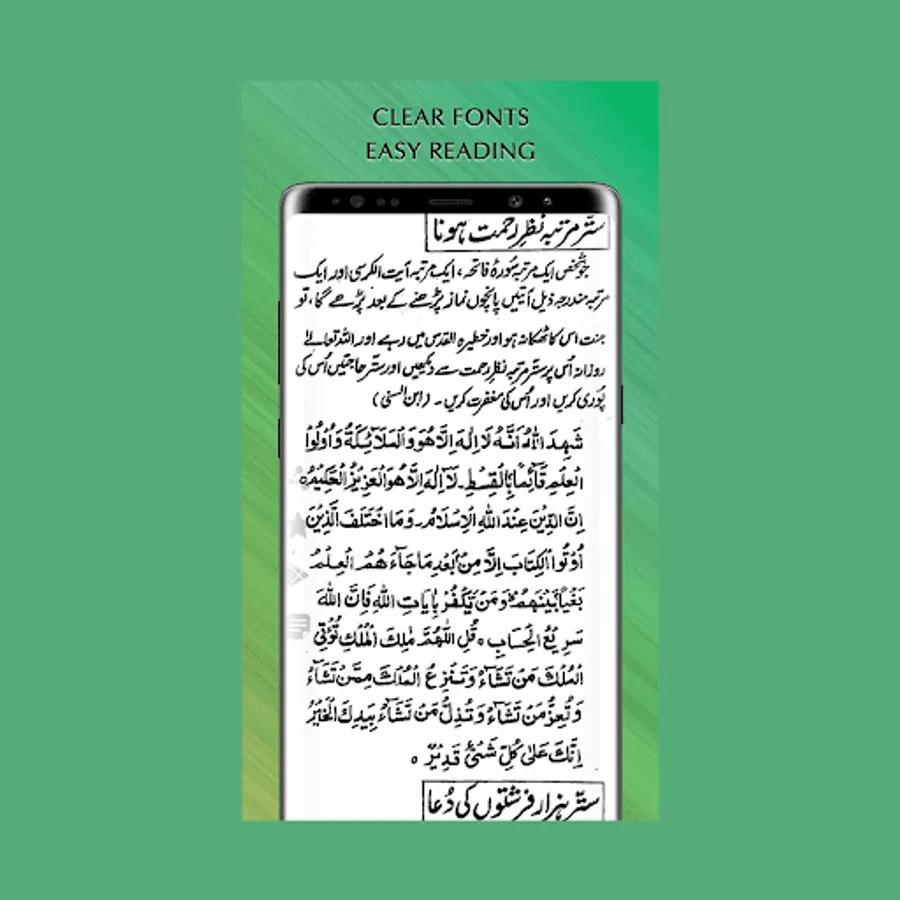 CLEAR FONTS
EASY READING
ستّر مرتبہ نظرِ رحمت ہونا
جو شخص ایک مرتبہ سُورۂ فاتحہ، ایک مرتبہ آیت الکرسی اور ایک
مرتبہ مندرجہ ذیل آیتیں پانچوں نماز پڑھنے کے بعد پڑھے گا، تو
جنت اس کا ٹھکانہ ہو اور خطیرہ القدس میں رہے اور اللہ تعالےٰ
روزانہ اُس پر ستّر مرتبہ نظرِ رحمت سے دیکھیں اور ستّر حاجتیں اُس کی
پُوری کریں اور اُس کی مغفرت کریں۔ (ابن السنی)
شَهِدَ اللهُ اَنَّهُ لَا اِلٰهَ اِلَّا هُوَ وَالْمَلَآئِكَةُ وَاُولُوا
الْعِلْمِ قَآئِمًا بِالْقِسْطِ۔ لَآ اِلٰهَ اِلَّا هُوَ الْعَزِيْزُ الْحَكِيْمُ ٥
اِنَّ الدِّيْنَ عِنْدَ اللهِ الْاِسْلَامُ۔ وَمَا اخْتَلَفَ الَّذِيْنَ
اُوْتُوا الْكِتَابَ اِلَّا مِنْ بَعْدِ مَا جَآءَ هُمُ الْعِلْمُ
بَغْيًا بَيْنَهُمْ وَمَنْ يَّكْفُرْ بِاٰيَاتِ اللهِ فَاِنَّ اللهَ
سَرِيْعُ الْحِسَابِ ٥ قُلِ اللّٰهُمَّ مٰلِكَ الْمُلْكِ تُؤْتِي
الْمُلْكَ مَنْ تَشَآءُ وَتَنْزِعُ الْمُلْكَ مِمَّنْ تَشَآءُ
وَتُعِزُّ مَنْ تَشَآءُ وَتُذِلُّ مَنْ تَشَآءُ بِيَدِكَ الْخَيْرُ
اِنَّكَ عَلٰى كُلِّ شَیْءٍ قَدِيْرٌ ٥
ستّر ہزار فرشتوں کی دُعا